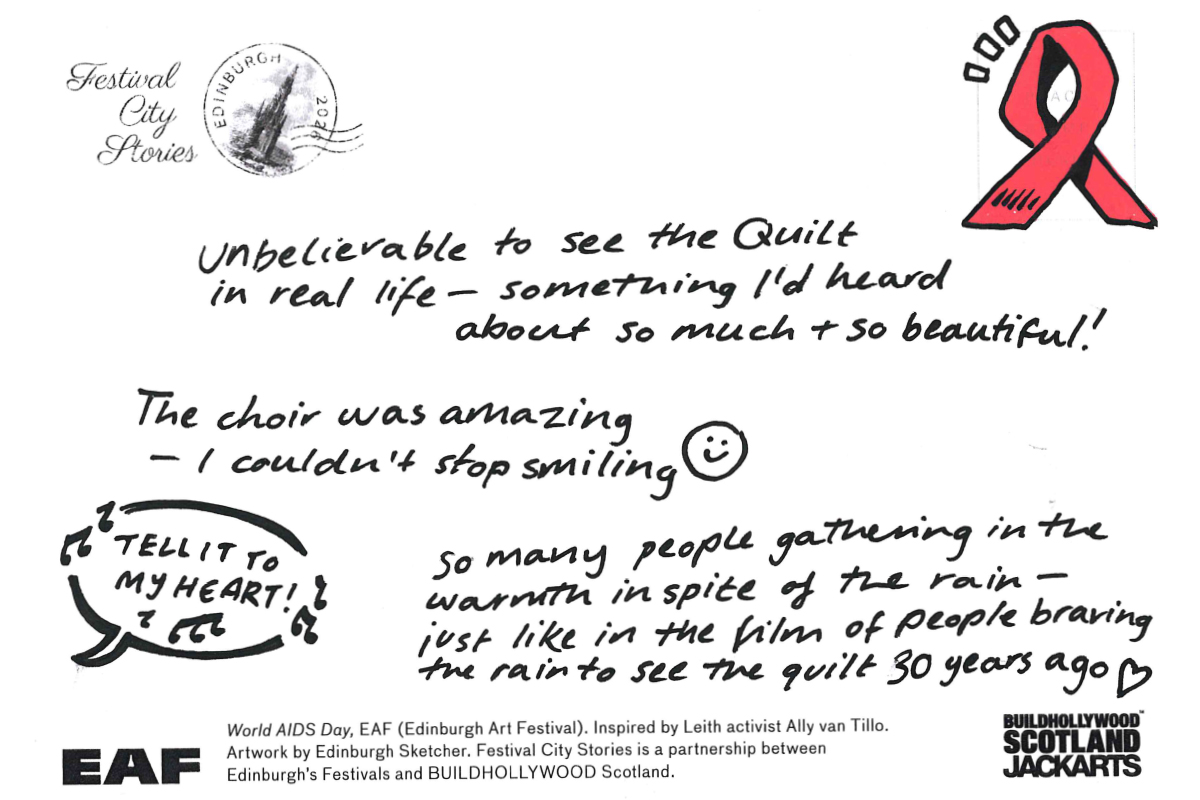 Festival
City
Stories
EDINBURGH 2026
Unbelievable to see the Quilt
in real life – something I'd heard
about so much + so beautiful!
The choir was amazing
– I couldn't stop smiling
TELL IT TO
MY HEART!
So many people gathering in the
warmth in spite of the rain –
just like in the film of people braving
the rain to see the quilt 30 years ago
World AIDS Day, EAF (Edinburgh Art Festival). Inspired by Leith activist Ally van Tillo.
Artwork by Edinburgh Sketcher. Festival City Stories is a partnership between
Edinburgh's Festivals and BUILDHOLLYWOOD Scotland.
EAF
BUILDHOLLYWOOD™
SCOTLAND
JACKARTS